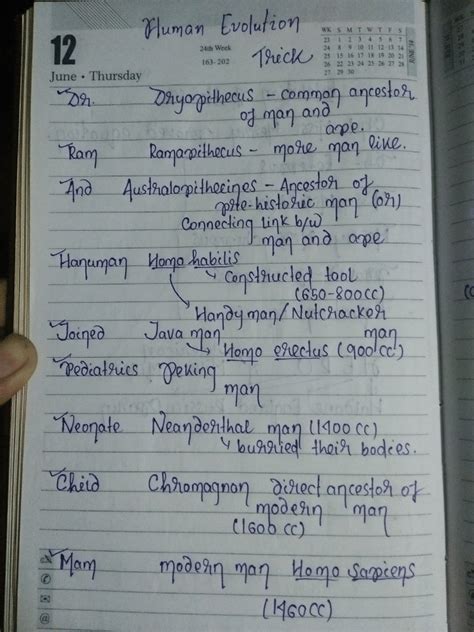 Human Evolution
12
June • Thursday
24th Week
163-202
Trick
WK S M T W T F S
23 1 2 3 4 5 6 7
24 8 9 10 11 12 13 14
25 15 16 17 18 19 20 21
26 22 23 24 25 26 27 28
27 29 30
JUNE
Dr. Dryopithecus - common ancestor
of man and
ape.
Ram Ramapithecus - more man live.
And Australopithecines - Ancestor of
pre-historic man (or)
Connecting link b/w
man and ape
Hanuman Homo habilis
Constructed tool
(650-800cc)
Handyman/Nutcracker
man
Joined Java man
Homo erectus (900cc)
Pediatrics Peking
man
Neonate Neanderthal man (1400cc)
burried their bodies.
Cheid Chromagnon direct ancestor of
modern man
(1600 cc)
Mam modern man Homo Sapiens
(1460cc)